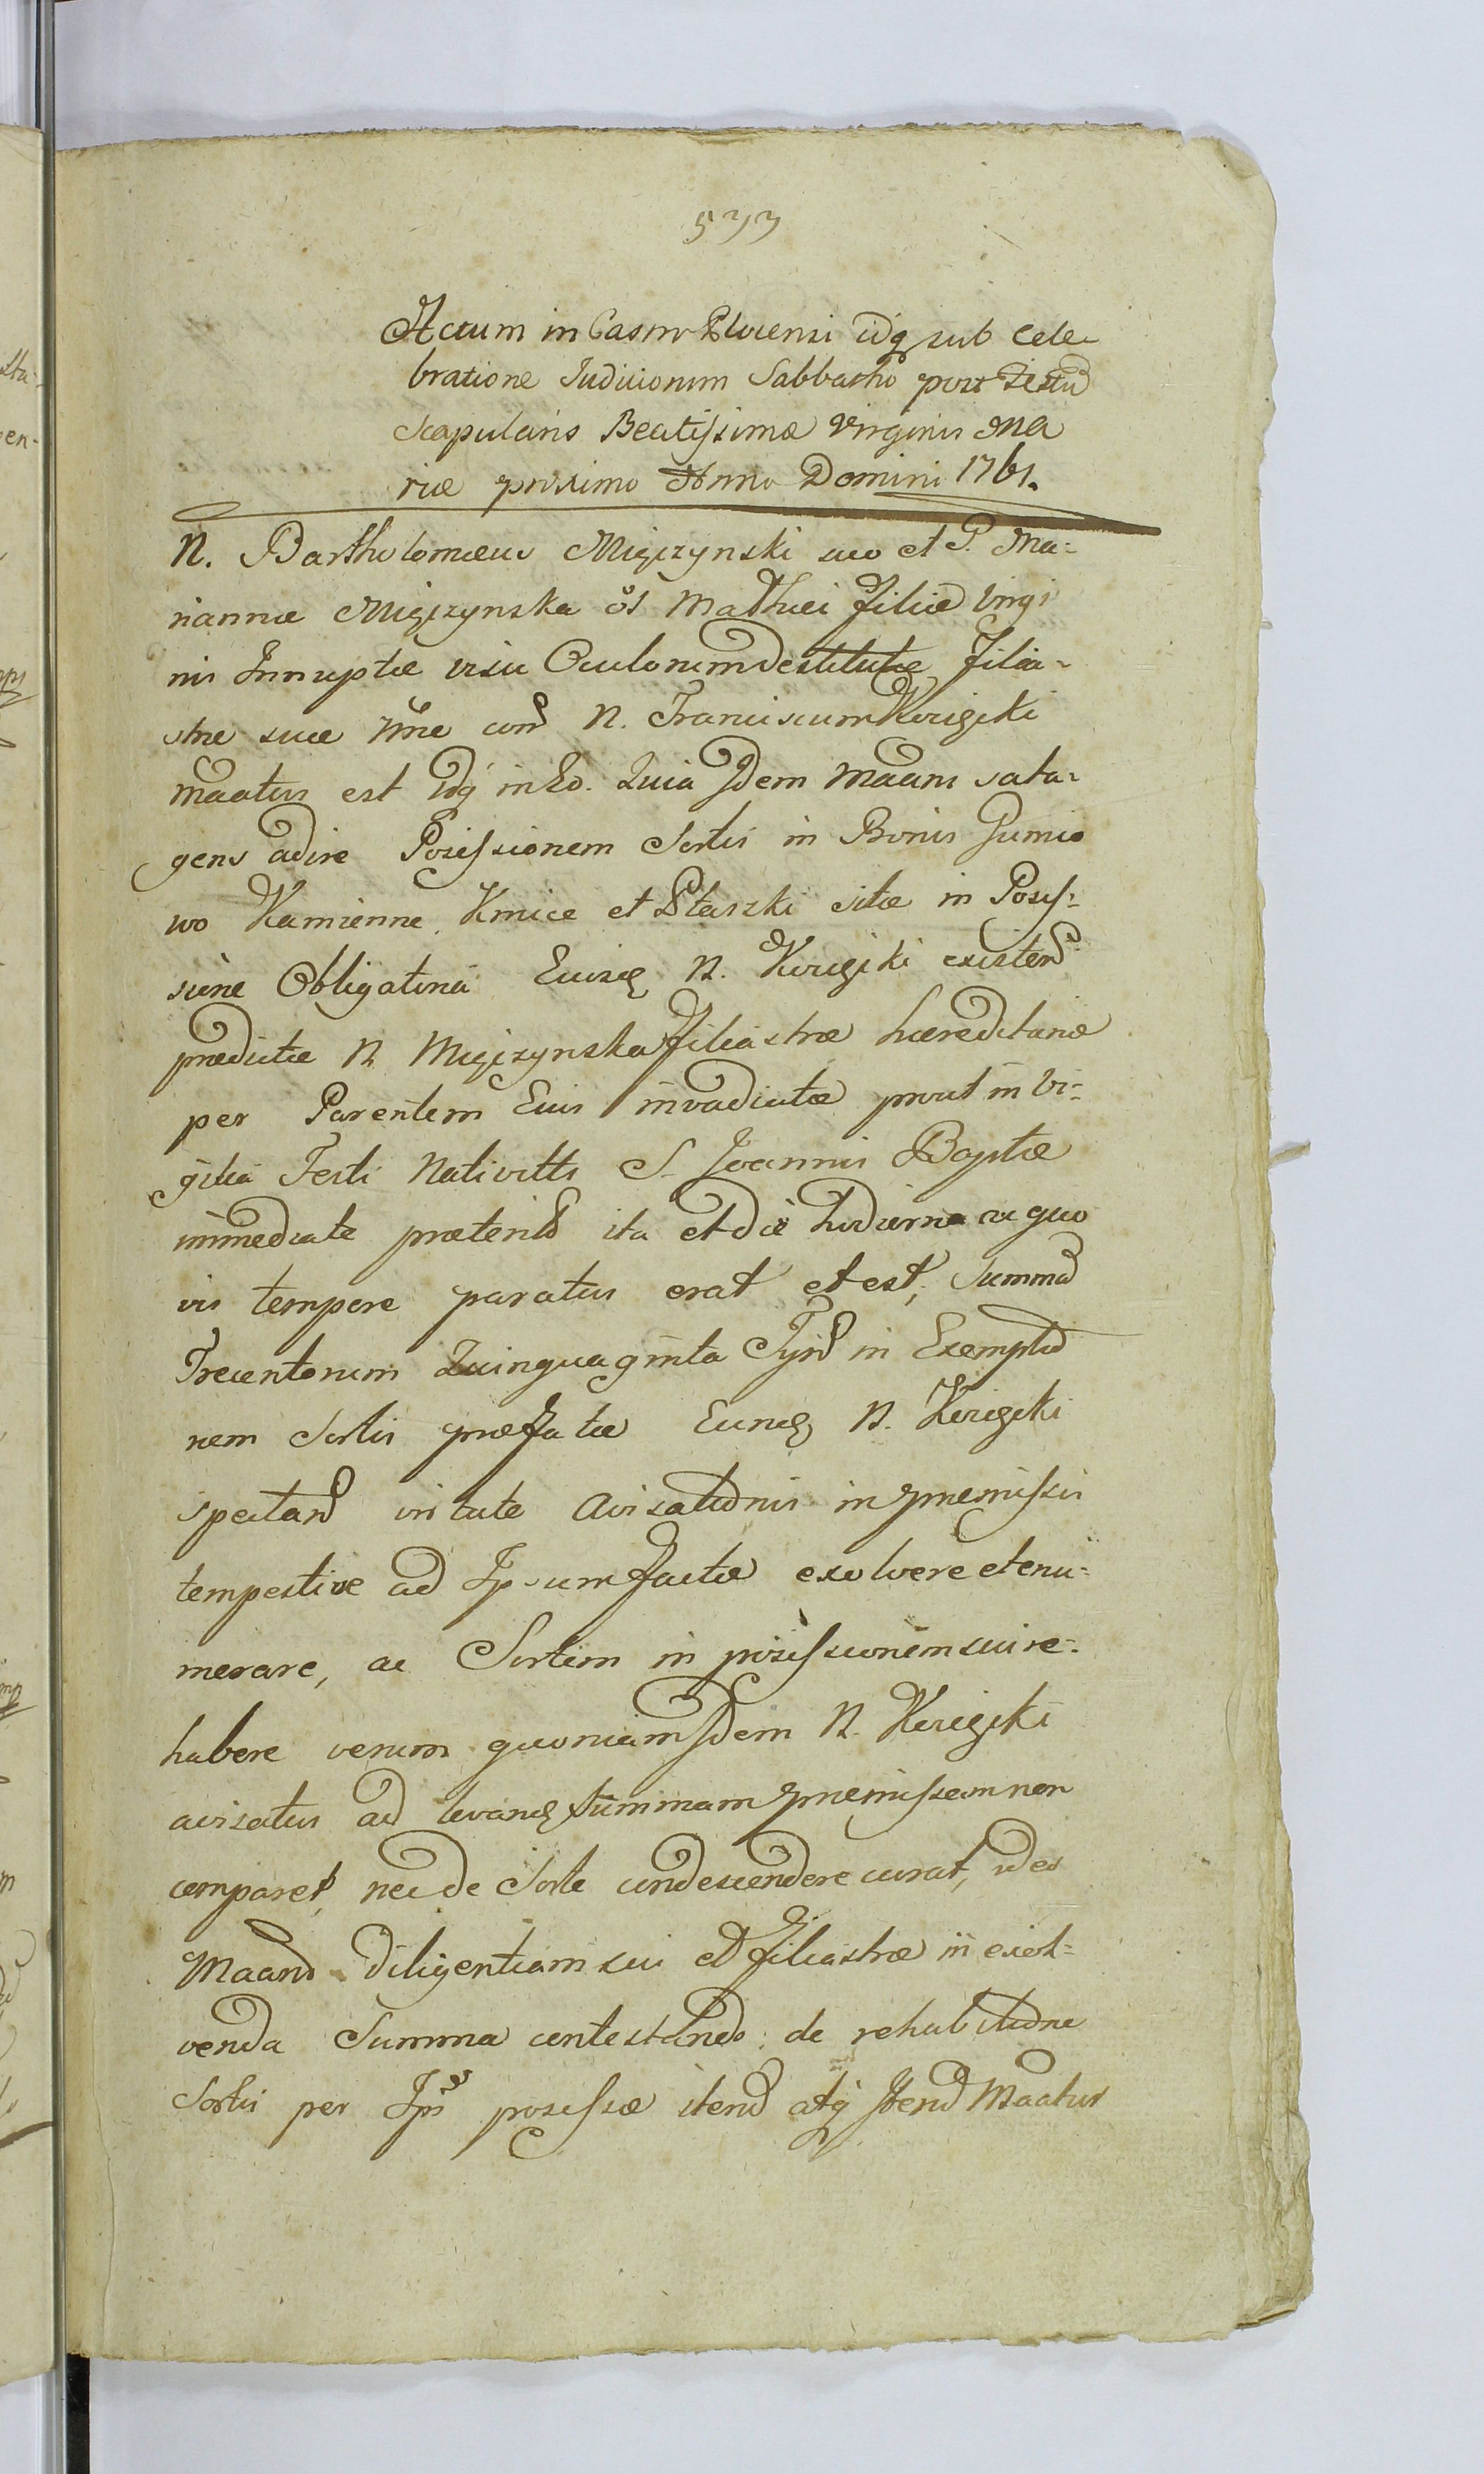 533
Actum in Castro Plocensi idq sub cele
bratione Iudiciorum Sabbatho post Festũ
Scapularis Beatissimæ Virginis Ma
riæ proximo Anno Domini 1761.
N. Bartholomæus Mięczynski suo et P. Ma=
riannæ Mięczynska ol Mathæi filiæ Virgi
nis Innuptæ visu Oculorum destitutæ filia=
stræ suæ nne con N.. Franciscum
maatus est idq in Eo. Quia Idem Maans sata=
gens adire Possessionem Sortis in Bonis Gumio
wo Kamienne, Kmice et Ptaszki sitæ in Posses=
sione Obligatoria Eiusd N. existen
prædictæ N. Mięczynska filiastræ hæreditariæ
per Parentem Eius invadiatæ prout in Vi=
gilia Festi Nativitts S. Joannis Baptæ
immediate præterit ita et die hodierna ac quo
vis tempore paratus erat et est, Summã
Trecentorum Quinquaginta Tynf in Exemptio
nem Sortis præfatæ Eund N.
spectan vitute Avisationis in præmissis
tempestive ad Ipsum factæ exolvere et enu=
merare, ac Sortem in possessionem sui re=
habere verum quoniam Idem N.
avisatus ad levand Summam præmissam non
comparet, nec de Sorte condescendere curat, ideo
Maans Diligentiam sui et filiastræ in exol=
venda Summa contestando: de rehabitione
Sortis per Ips possessæ iterũ atq iterũ Maatur